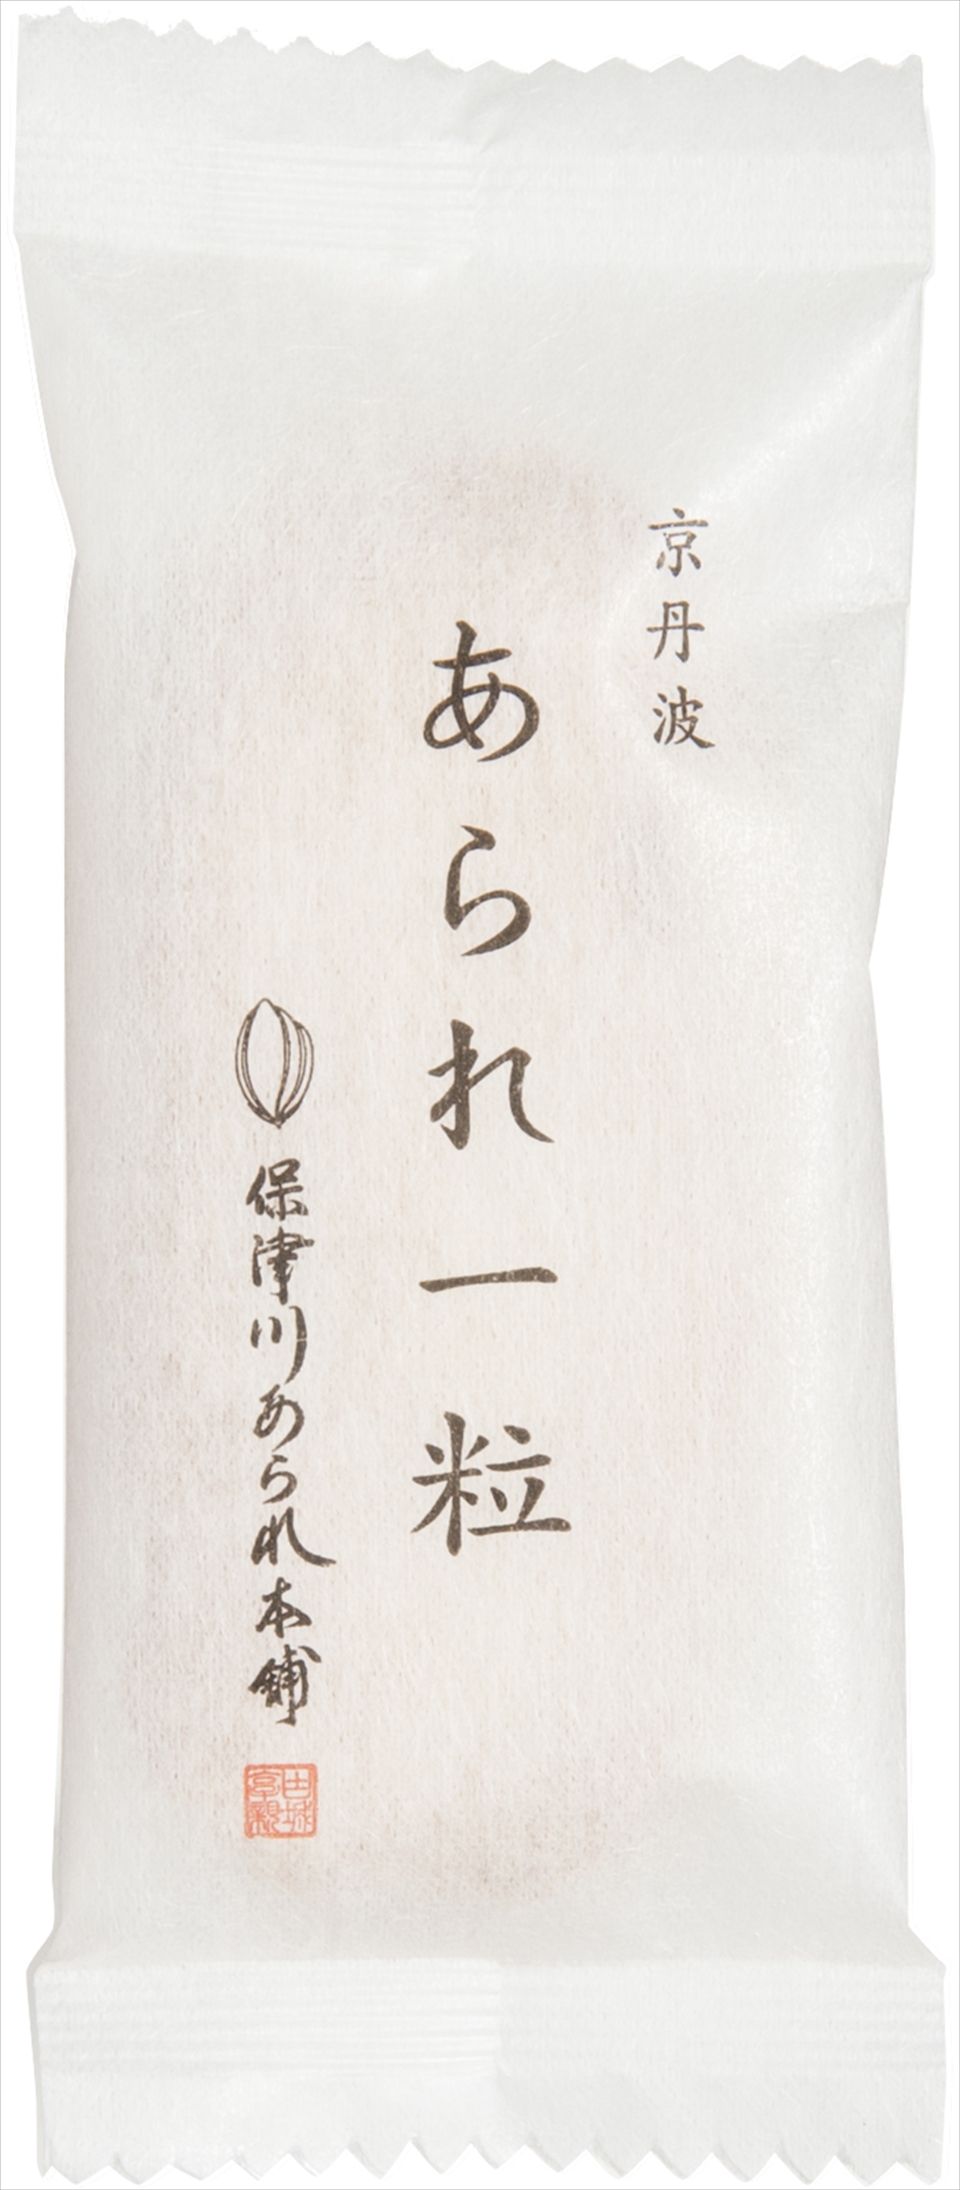 京丹波
あられ一粒
保津川あられ本舗